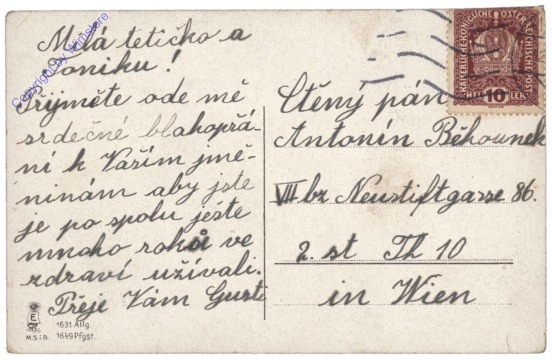 Milá tetičko a
Toniku!
Přijměte ode mě
srdečné blahopřá-
ní k Vaším jmé-
ninám aby jste
je po spolu ješte
mnoho roků ve
zdraví užívali.
Přeje Vám Gusti
Ctěný pán
Antonín Běhounek
VII bz Neustiftgasse 86.
2. st Th 10
in Wien
KAISERLICHE KÖNIGLICHE ÖSTERREICHISCHE POST
10
HELLER
Copyright by Wnmstore
E
M.S.i.B.
1631 Allg.
1649 Pfgst.